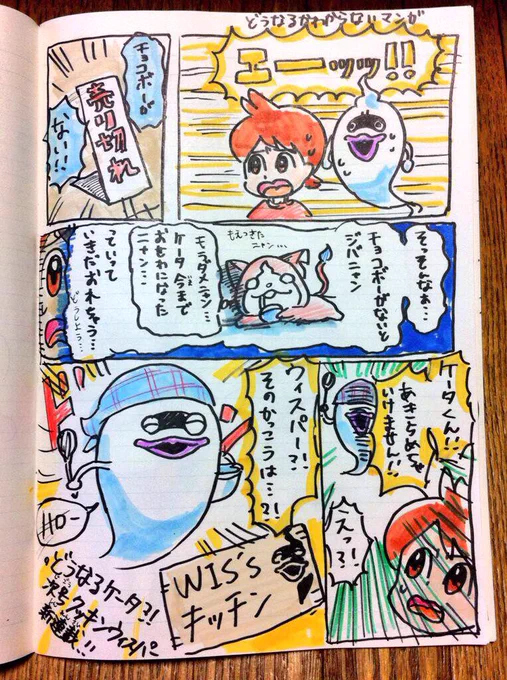 どうなるかわからないマンガ
エーッッ!!
チョコボーが
売り切れ
ない…!!
そっそんなぁ…
チョコボーがないと
ジバニャン
もえつきた
ニャン…
もうダメニャン…
ケータ 今まで
おせわになった
ニャン…
っていって
いきだおれちゃう…
どうしよう…
ケータくん!!
あきらめちゃ
いけません!!
えっ?!
ウィスパー?!
そのかっこうは…?!
ハロー
WIS's
キッチン
どうなるケータ?!
次号クッキンウィスパー
新連載!!